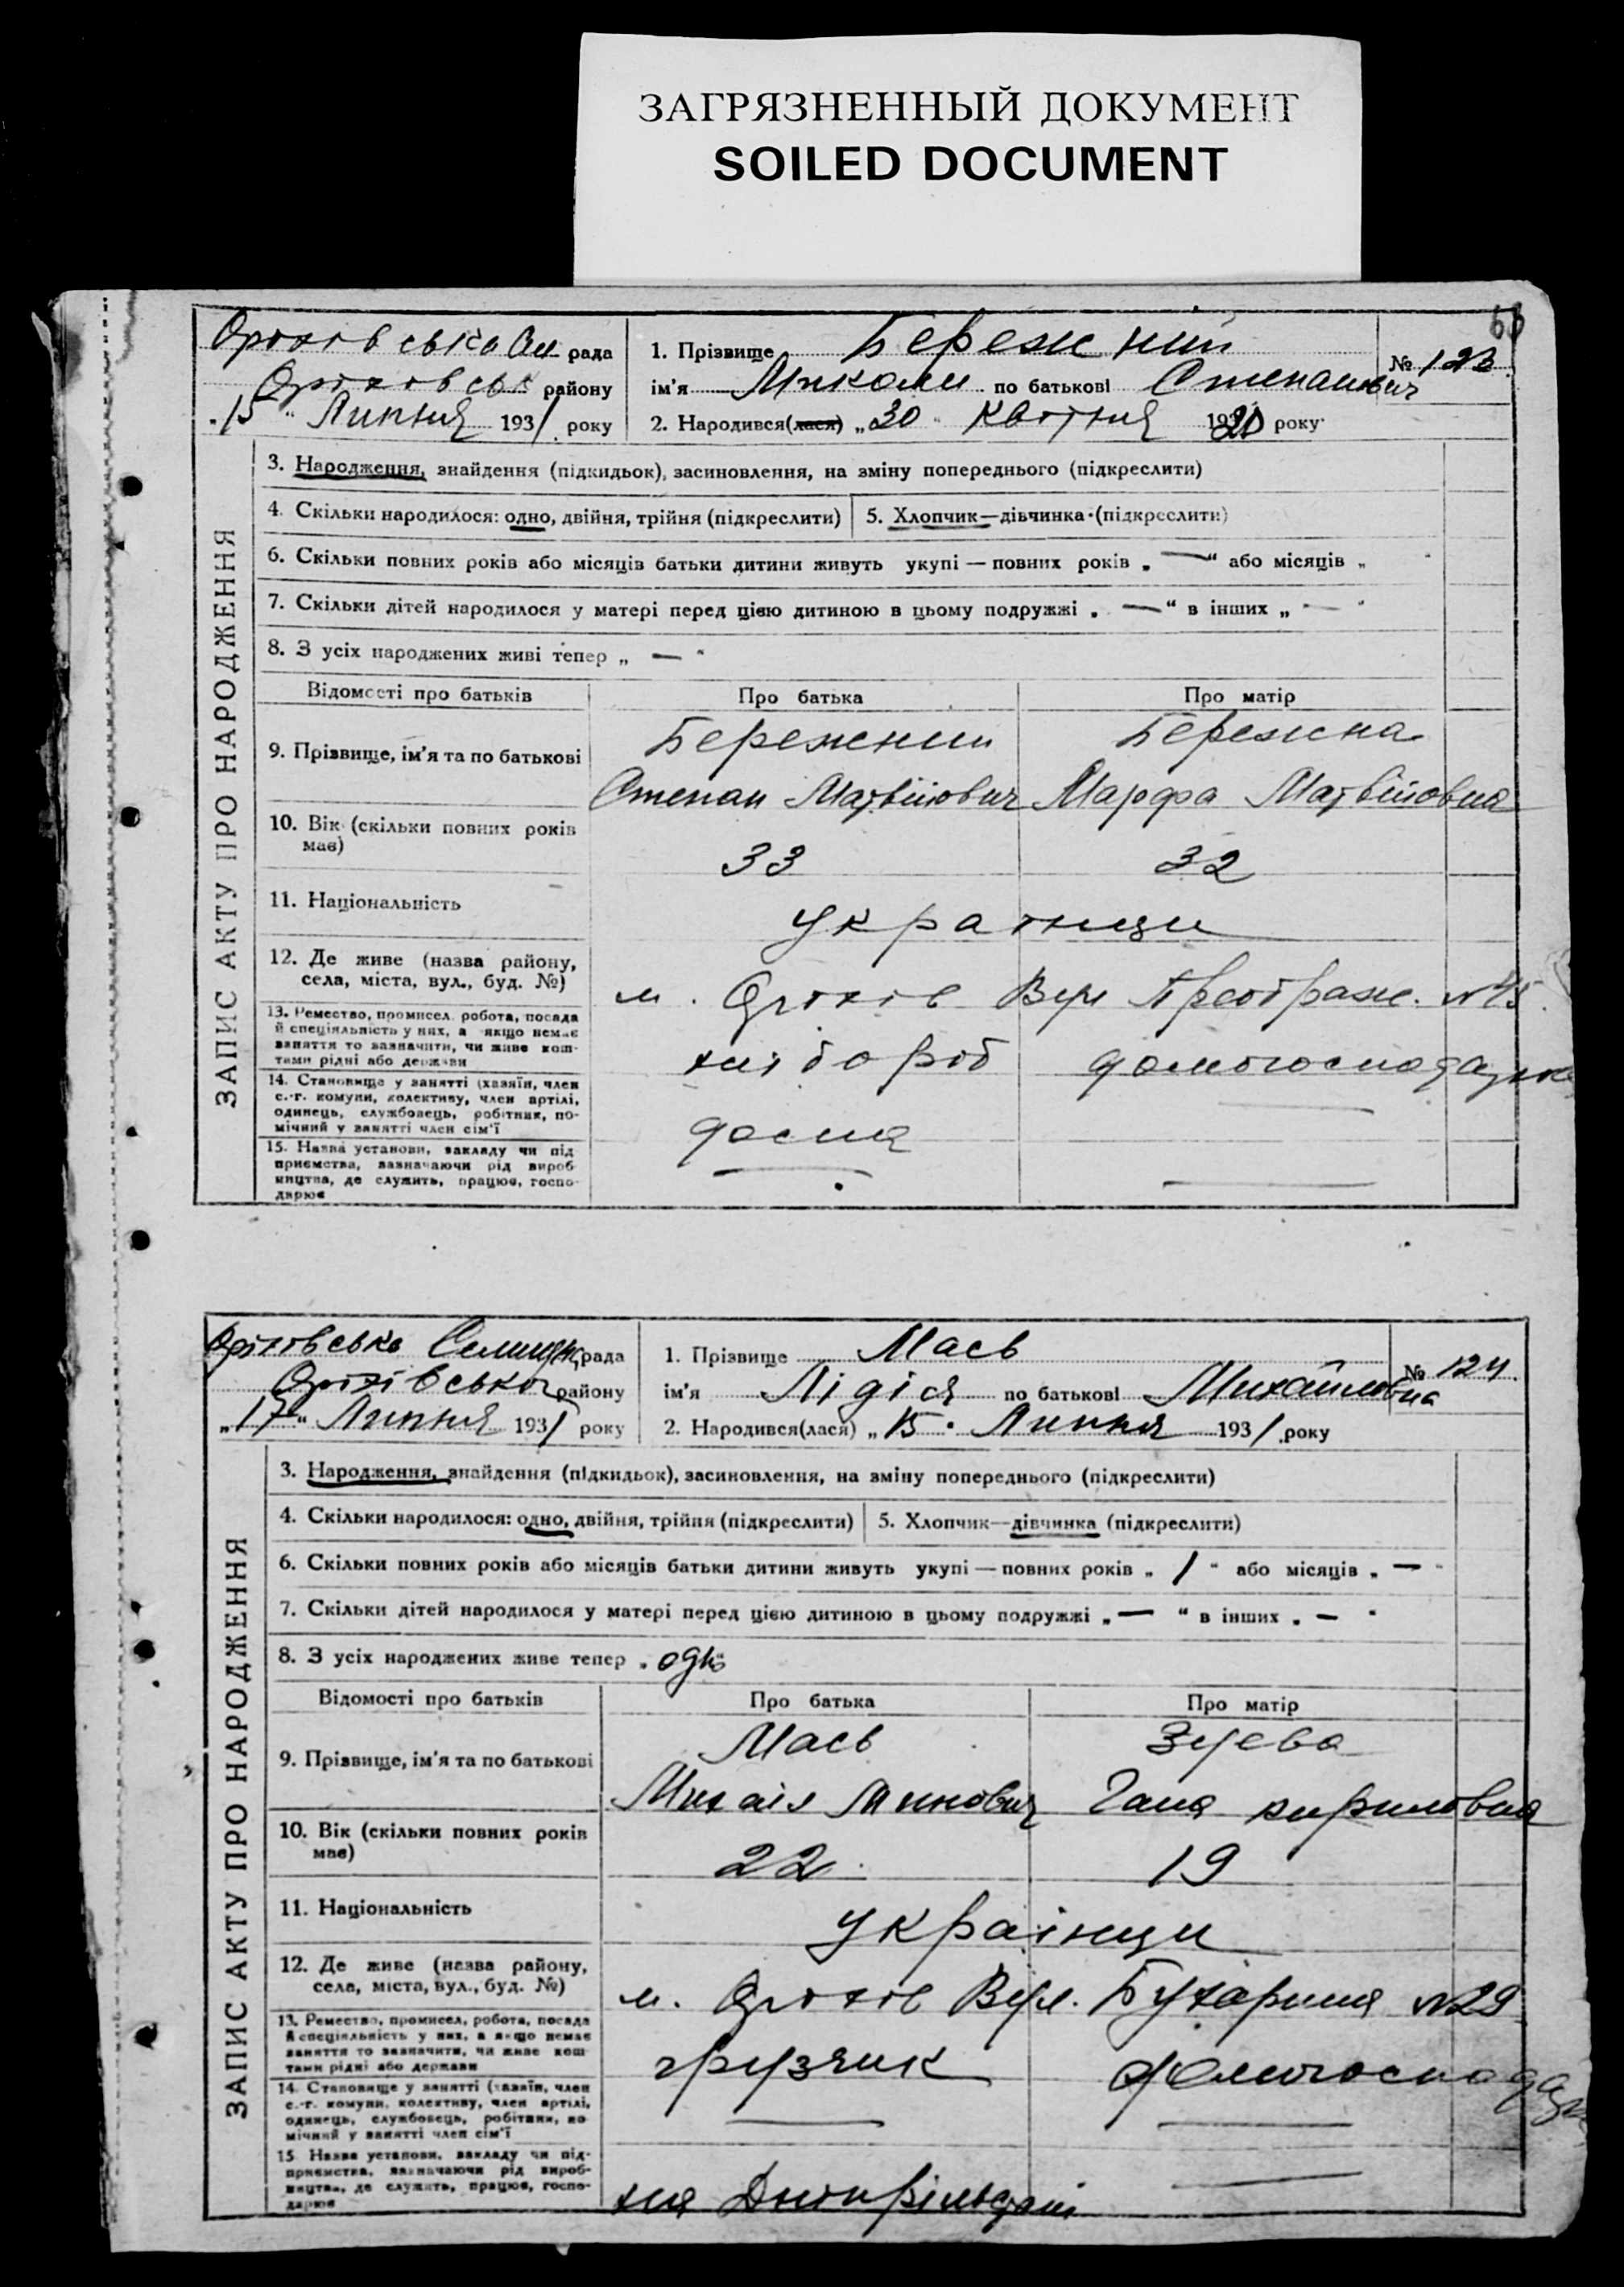 ЗАГРЯЗНЕННЫЙ ДОКУМЕНТ
SOILED DOCUMENT
ЗАПИС АКТУ ПРО НАРОДЖЕННЯ
Оріхівська рада
Оріхівськ району
"15" Липня 1931 року
1. Прізвище Бережний
№ 123
ім'я Микола по батькові Степанович
2. Народився(лася) "30" Квітня року
3. Народження, знайдення (підкидьок), засиновлення, на зміну попереднього (підкреслити)
4. Скільки народилося: одно, двійня, трійня (підкреслити)
5. Хлопчик—дівчинка (підкреслити)
6. Скільки повних років або місяців батьки дитини живуть укупі — повних років „ — “ або місяців „
7. Скільки дітей народилося у матері перед цією дитиною в цьому подружжі „ — “ в інших „ — “
8. З усіх народжених живі тепер „ — “
Відомості про батьків Про батька Про матір
9. Прізвище, ім'я та по батькові
Бережний Бережна
Степан Матвійович Марфа Матвійовна
10. Вік (скільки повних років має)
33 32
11. Національність
українци
12. Де живе (назва району, села, міста, вул., буд. №)
м. Оріхів Вул Преображ. №45
13. Ремество, промисел, робота, посада й спеціяльність у них, а якщо немає заняття то зазначити, чи живе коштами рідні або держави
хлібороб домогосподарка
14. Становище у занятті (хазяїн, член с.-г. комуни, колективу, член артілі, одинець, службовець, робітник, помічний у занятті член сім'ї
15. Назва установи, закладу чи підприємства, зазначаючи рід виробництва, де служить, працює, господарює
ЗАПИС АКТУ ПРО НАРОДЖЕННЯ
Оріхівська Селищн рада
Оріхівсько району
„17“ Липня 1931 року
1. Прізвище Мась
№ 124
ім'я Лідія по батькові Михайловна
2. Народився(лася) „15“ Липня 1931 року
3. Народження, знайдення (підкидьок), засиновлення, на зміну попереднього (підкреслити)
4. Скільки народилося: одно, двійня, трійня (підкреслити)
5. Хлопчик—дівчинка (підкреслити)
6. Скільки повних років або місяців батьки дитини живуть укупі — повних років „ 1 “ або місяців „ — “
7. Скільки дітей народилося у матері перед цією дитиною в цьому подружжі „ — “ в інших „ — “
8. З усіх народжених живе тепер „одно“
Відомості про батьків Про батька Про матір
9. Прізвище, ім'я та по батькові
Мась Зуєва
Минович Гана Кириловна
10. Вік (скільки повних років має)
22 19
11. Національність
українци
12. Де живе (назва району, села, міста, вул., буд. №)
м. Оріхів Вул. Бухариня №29
13. Ремество, промисел, робота, посада й спеціяльність у них, а якщо немає заняття то зазначити, чи живе коштами рідні або держави
грузчик
14. Становище у занятті (хазяїн, член с.-г. комуни, колективу, член артілі, одинець, службовець, робітник, помічний у занятті член сім'ї
15. Назва установи, закладу чи підприємства, зазначаючи рід виробництва, де служить, працює, господарює